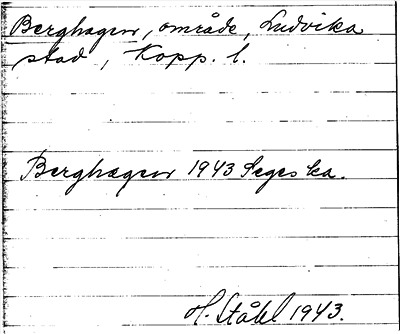 Berghagen, område, Ludvika
stad, Kopp. l.
Berghagen 1943 Seges ka.
H. Ståhl 1943.